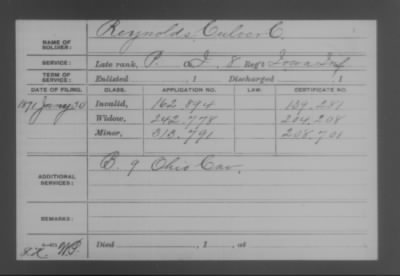 NAME OF SOLDIER: Reynolds, Culver C.
SERVICE: Late rank, P. Co. I, 8 Reg't Iowa Inf
TERM OF SERVICE: Enlisted , 1 Discharged , 1
DATE OF FILING. CLASS. APPLICATION NO. LAW. CERTIFICATE NO.
1871 Jany 30 Invalid, 162.894 139.281
Widow, 242.778 204.208
Minor, 313.791 208.701
ADDITIONAL SERVICES: B. 9 Ohio Cav.
REMARKS:
Died , 1 , at